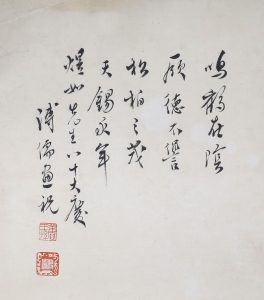 鳴鶴在陰
厥德不諐
松柏之茂
天錫永年
煜如老先生八十大慶
溥儒畫祝